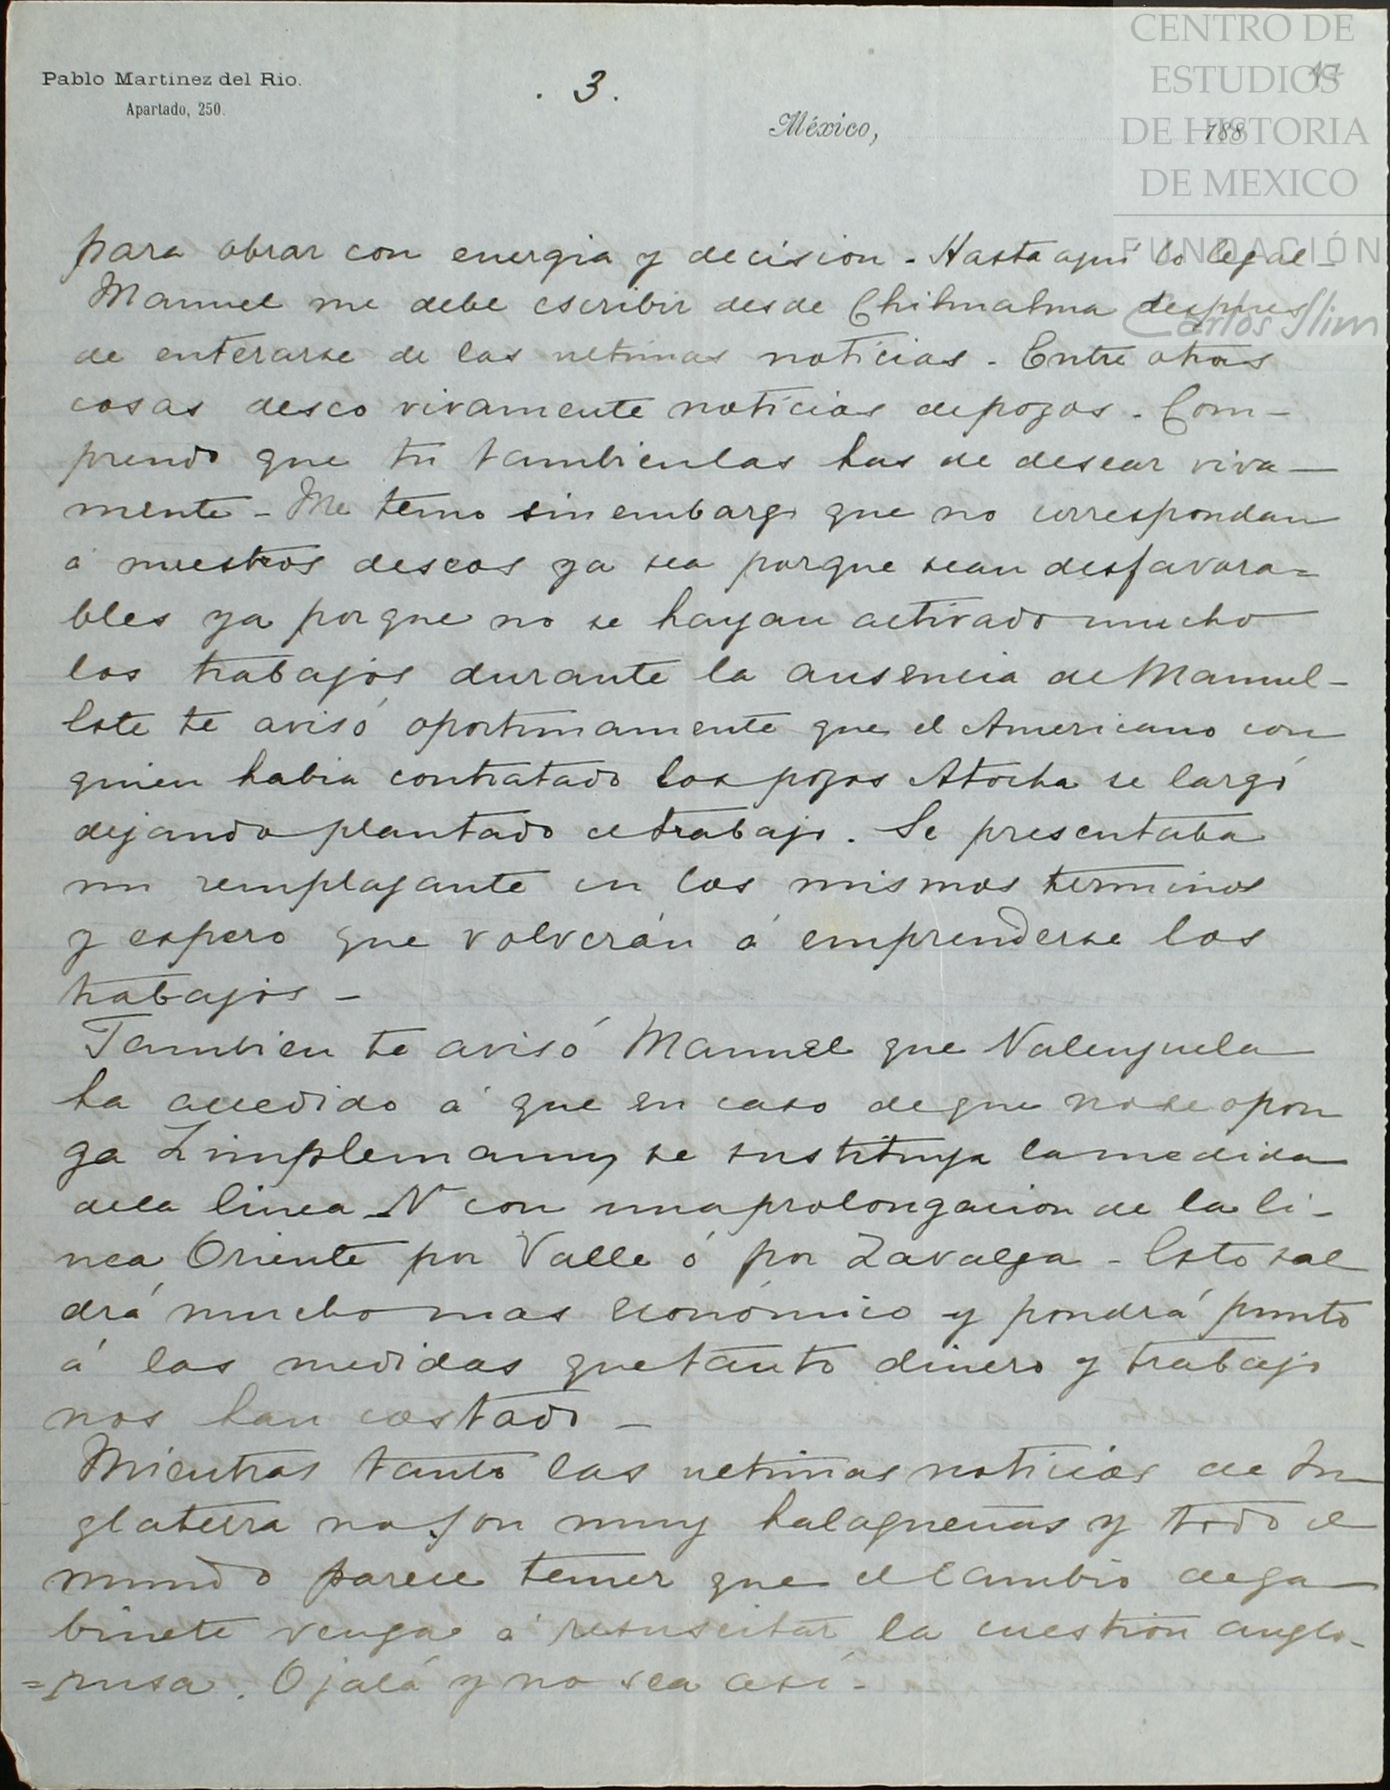 Pablo Martinez del Rio.
Apartado, 250.
. 3 .
47
México, 188
CENTRO DE
ESTUDIOS
DE HISTORIA
DE MEXICO
FUNDACIÓN
Carlos Slim
para obrar con energia y decision - Hasta aqui lo legal -
Manuel me debe escribir desde Chihuahua despues
de enterarse de las ultimas noticias - Entre otras
cosas deseo vivamente noticias de pozos - Com-
prendo que tu tambien las has de desear viva-
mente - Me temo sin embargo que no correspondan
á nuestros deseos ya sea porque sean desfavora=
bles ya porque no se hayan activado mucho
los trabajos durante la ausencia de Manuel -
Este te avisó oportunamente que el Americano con
quien habia contratado los pozos Atocha se largó
dejando plantado el trabajo. Se presentaba
un remplazante en los mismos terminos
y espero que volverán á emprenderse los
trabajos -
Tambien te avisó Manuel que Valenzuela
ha accedido á que en caso de que no se opon
ga se sustituya la medida
de la linea N con una prolongacion de la li-
nea Oriente por Valle ó por Zavalza - Esto sal
drá mucho mas económico y pondrá punto
á las medidas que tanto dinero y trabajo
nos han costado -
Mientras tanto las ultimas noticias de In
glaterra no son muy halagueñas y todo el
mundo parece temer que el cambio de ga
binete venga á resuscitar la cuestion anglo-
=rusa. Ojalá y no sea asi -